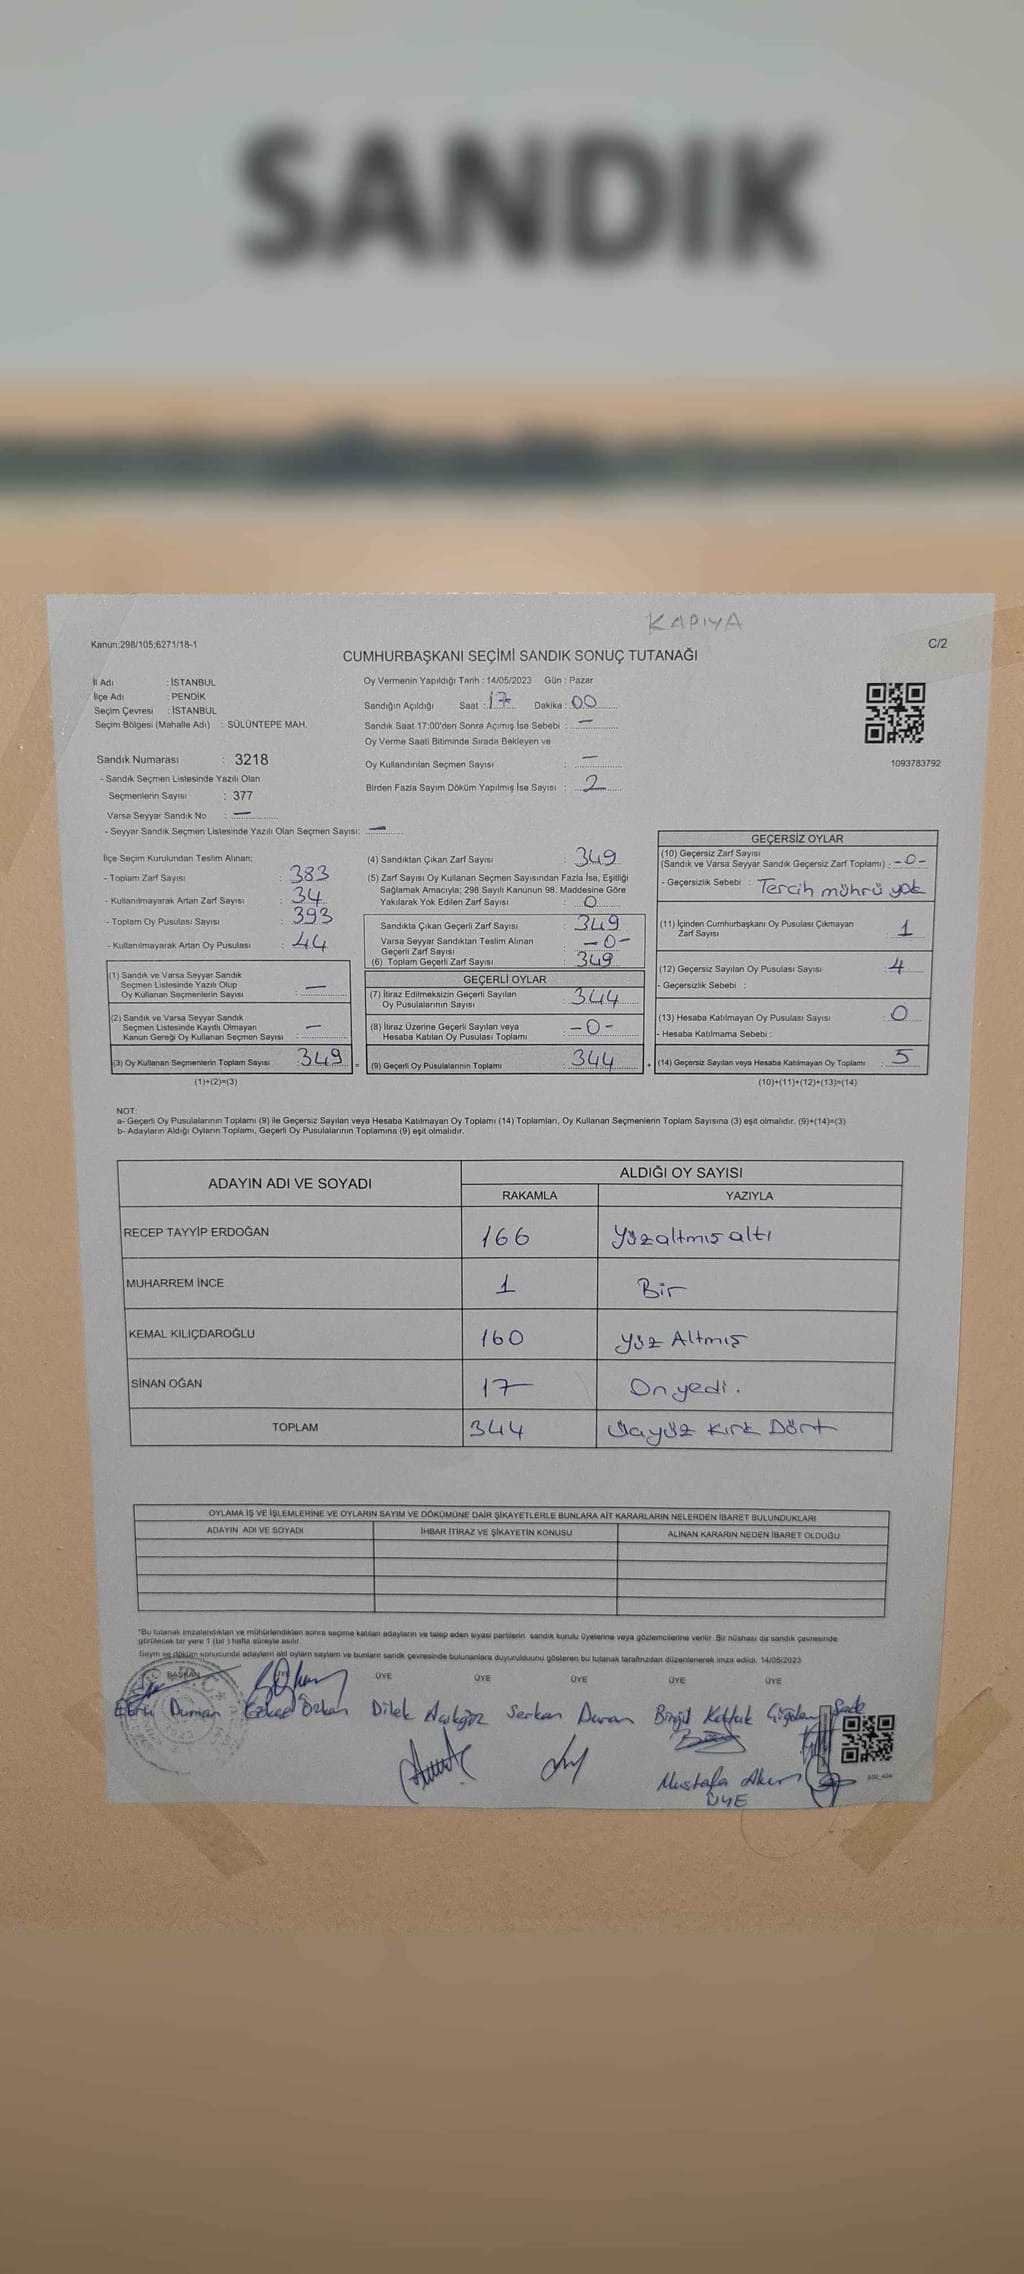 SANDIK
KAPIYA
Kanun:298/105;6271/18-1
C/2
CUMHURBAŞKANI SEÇİMİ SANDIK SONUÇ TUTANAĞI
İl Adı : İSTANBUL
İlçe Adı : PENDİK
Seçim Çevresi : İSTANBUL
Seçim Bölgesi (Mahalle Adı) : SÜLÜNTEPE MAH.
Oy Vermenin Yapıldığı Tarih : 14/05/2023 Gün : Pazar
Sandığın Açıldığı Saat : 17 Dakika : 00
Sandık Saat 17:00'den Sonra Açımış İse Sebebi : —
Oy Verme Saati Bitiminde Sırada Bekleyen ve
Oy Kullandırılan Seçmen Sayısı : —
Birden Fazla Sayım Döküm Yapılmış İse Sayısı : 2
1093783792
Sandık Numarası : 3218
- Sandık Seçmen Listesinde Yazılı Olan
Seçmenlerin Sayısı : 377
Varsa Seyyar Sandık No : —
- Seyyar Sandık Seçmen Listesinde Yazılı Olan Seçmen Sayısı: —
İlçe Seçim Kurulundan Teslim Alınan;
- Toplam Zarf Sayısı : 383
- Kullanılmayarak Artan Zarf Sayısı : 34
- Toplam Oy Pusulası Sayısı : 393
- Kullanılmayarak Artan Oy Pusulası : 44
(1) Sandık ve Varsa Seyyar Sandık
Seçmen Listesinde Yazılı Olup
Oy Kullanan Seçmenlerin Sayısı : —
(2) Sandık ve Varsa Seyyar Sandık
Seçmen Listesinde Kayıtlı Olmayan
Kanun Gereği Oy Kullanan Seçmen Sayısı : —
(3) Oy Kullanan Seçmenlerin Toplam Sayısı : 349
(1)+(2)=(3)
(4) Sandıktan Çıkan Zarf Sayısı : 349
(5) Zarf Sayısı Oy Kullanan Seçmen Sayısından Fazla İse, Eşitliği
Sağlamak Amacıyla; 298 Sayılı Kanunun 98. Maddesine Göre
Yakılarak Yok Edilen Zarf Sayısı : 0
Sandıkta Çıkan Geçerli Zarf Sayısı : 349
Varsa Seyyar Sandıktan Teslim Alınan
Geçerli Zarf Sayısı : -0-
(6) Toplam Geçerli Zarf Sayısı : 349
GEÇERLİ OYLAR
(7) İtiraz Edilmeksizin Geçerli Sayılan
Oy Pusulalarının Sayısı : 344
(8) İtiraz Üzerine Geçerli Sayılan veya
Hesaba Katılan Oy Pusulası Toplamı : -0-
(9) Geçerli Oy Pusulalarının Toplamı : 344
GEÇERSİZ OYLAR
(10) Geçersiz Zarf Sayısı
(Sandık ve Varsa Seyyar Sandık Geçersiz Zarf Toplamı) : -0-
- Geçersizlik Sebebi : Tercih mührü yok
(11) İçinden Cumhurbaşkanı Oy Pusulası Çıkmayan
Zarf Sayısı : 1
(12) Geçersiz Sayılan Oy Pusulası Sayısı : 4
- Geçersizlik Sebebi :
(13) Hesaba Katılmayan Oy Pusulası Sayısı : 0
- Hesaba Katılmama Sebebi :
(14) Geçersiz Sayılan veya Hesaba Katılmayan Oy Toplamı : 5
(10)+(11)+(12)+(13)=(14)
NOT:
a- Geçerli Oy Pusulalarının Toplamı (9) ile Geçersiz Sayılan veya Hesaba Katılmayan Oy Toplamı (14) Toplamları, Oy Kullanan Seçmenlerin Toplam Sayısına (3) eşit olmalıdır. (9)+(14)=(3)
b- Adayların Aldığı Oyların Toplamı, Geçerli Oy Pusulalarının Toplamına (9) eşit olmalıdır.
ADAYIN ADI VE SOYADI
ALDIĞI OY SAYISI
RAKAMLA YAZIYLA
RECEP TAYYİP ERDOĞAN 166 Yüzaltmış altı
MUHARREM İNCE 1 Bir
KEMAL KILIÇDAROĞLU 160 Yüz Altmış
SİNAN OĞAN 17 On yedi.
TOPLAM 344 Üçyüz Kırk Dört
OYLAMA İŞ VE İŞLEMLERİNE VE OYLARIN SAYIM VE DÖKÜMÜNE DAİR ŞİKAYETLERLE BUNLARA AİT KARARLARIN NELERDEN İBARET BULUNDUKLARI
ADAYIN ADI VE SOYADI İHBAR İTİRAZ VE ŞİKAYETİN KONUSU ALINAN KARARIN NEDEN İBARET OLDUĞU
*Bu tutanak imzalandıktan ve mühürlendikten sonra seçime katılan adayların ve talep eden siyasi partilerin sandık kurulu üyelerine veya gözlemcilerine verilir. Bir nüshası da sandık çevresinde
görülecek bir yere 1 (bir ) hafta süreyle asılır.
Sayım ve döküm sonucunda adayların aldı oyların sayılarn ve bunların sandık çevresinde bulunanlara duyurulduunu gösteren bu tutanak tarafımızdan düzenlenerek imza edildi. 14/05/2023
BAŞKAN ÜYE ÜYE ÜYE ÜYE ÜYE ÜYE
Duman Özkan Dilek Açıkgöz Serkan Duran Birgül Çiğdem
Mustafa Akın
ÜYE